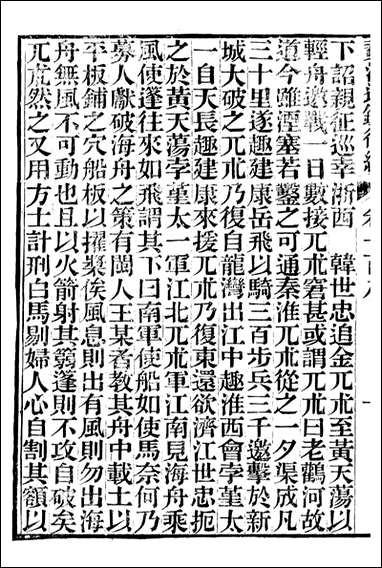 下詔親征巡幸浙西　韓世忠追金兀朮至黃天蕩以
輕舟邀戰一日數接兀朮窘甚或謂兀朮曰老鸛河故
道今雖湮塞若鑿之可通秦淮兀朮從之一夕渠成凡
三十里遂趣建康岳飛以騎三百步兵三千邀擊於新
城大破之兀朮乃復自龍灣出江中趣淮西會孛菫太
一自天長趣建康來援兀朮乃復東還欲濟江世忠扼
之於黃天蕩孛菫太一軍江北兀朮軍江南見海舟乘
風使蓬往來如飛謂其下曰南軍使船如使馬奈何乃
募人獻破海舟之策有閩人王某者教其舟中載土以
平板鋪之穴船板以擢槳俟風息則出有風則勿出海
舟無風不可動也且以火箭射其篛蓬則不攻自破矣
兀朮然之又用方士計刑白馬剔婦人心自割其額以